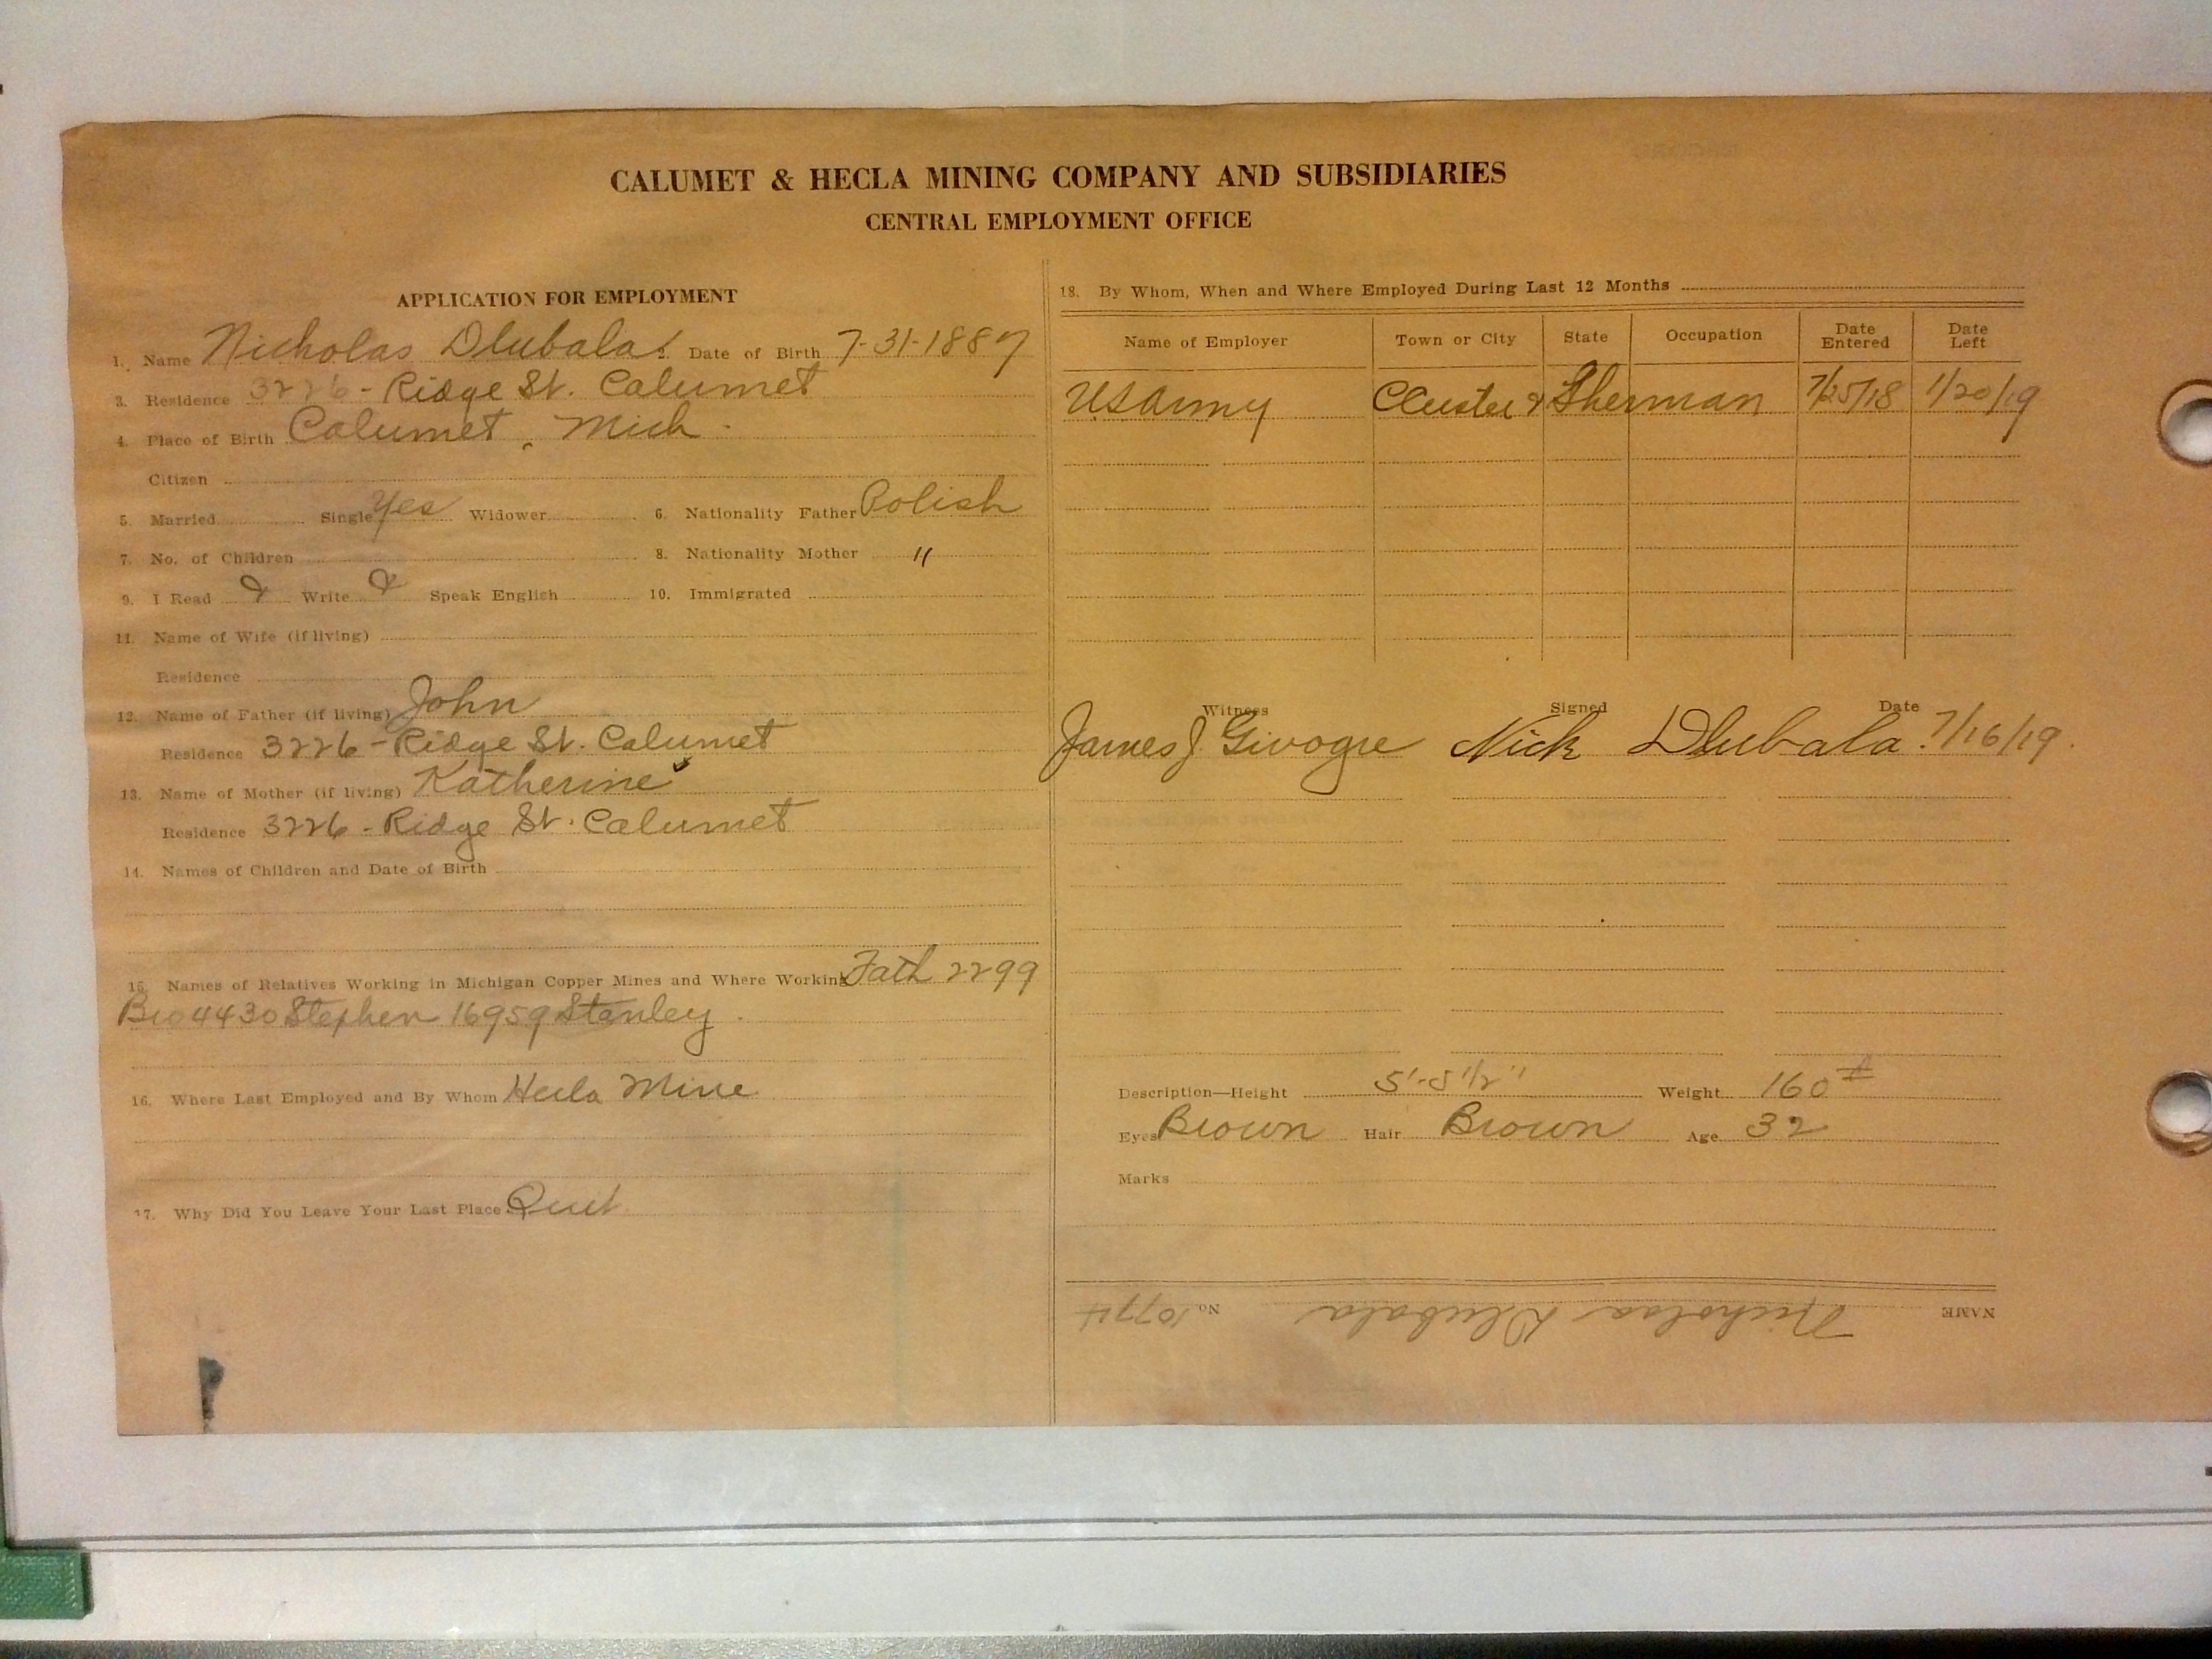 CALUMET & HECLA MINING COMPANY AND SUBSIDIARIES
CENTRAL EMPLOYMENT OFFICE
APPLICATION FOR EMPLOYMENT
1. Name Nicholas Dlubala 2. Date of Birth 7-31-1887
3. Residence 3226 - Ridge St. Calumet
4. Place of Birth Calumet, Mich.
Citizen
5. Married Single Yes Widower 6. Nationality Father Polish
7. No. of Children 8. Nationality Mother "
9. I Read & Write & Speak English 10. Immigrated
11. Name of Wife (if living)
Residence
12. Name of Father (if living) John
Residence 3226 - Ridge St. Calumet
13. Name of Mother (if living) Katherine
Residence 3226 - Ridge St. Calumet
14. Names of Children and Date of Birth
15. Names of Relatives Working in Michigan Copper Mines and Where Working Fath 2299
Bro 4430 Stephen 16959 Stanley.
16. Where Last Employed and By Whom Hecla Mine
17. Why Did You Leave Your Last Place Quit
18. By Whom, When and Where Employed During Last 12 Months
Name of Employer Town or City State Occupation Date Entered Date Left
US Army Custer & Sherman 7/25/18 1/20/19
Witness Signed Date
James J. Nick Dlubala. 7/16/19.
Description—Height 5'-5 1/2" Weight 160 #
Eyes Brown Hair Brown Age 32
Marks
NAME Nicholas Dlubala No. 10774